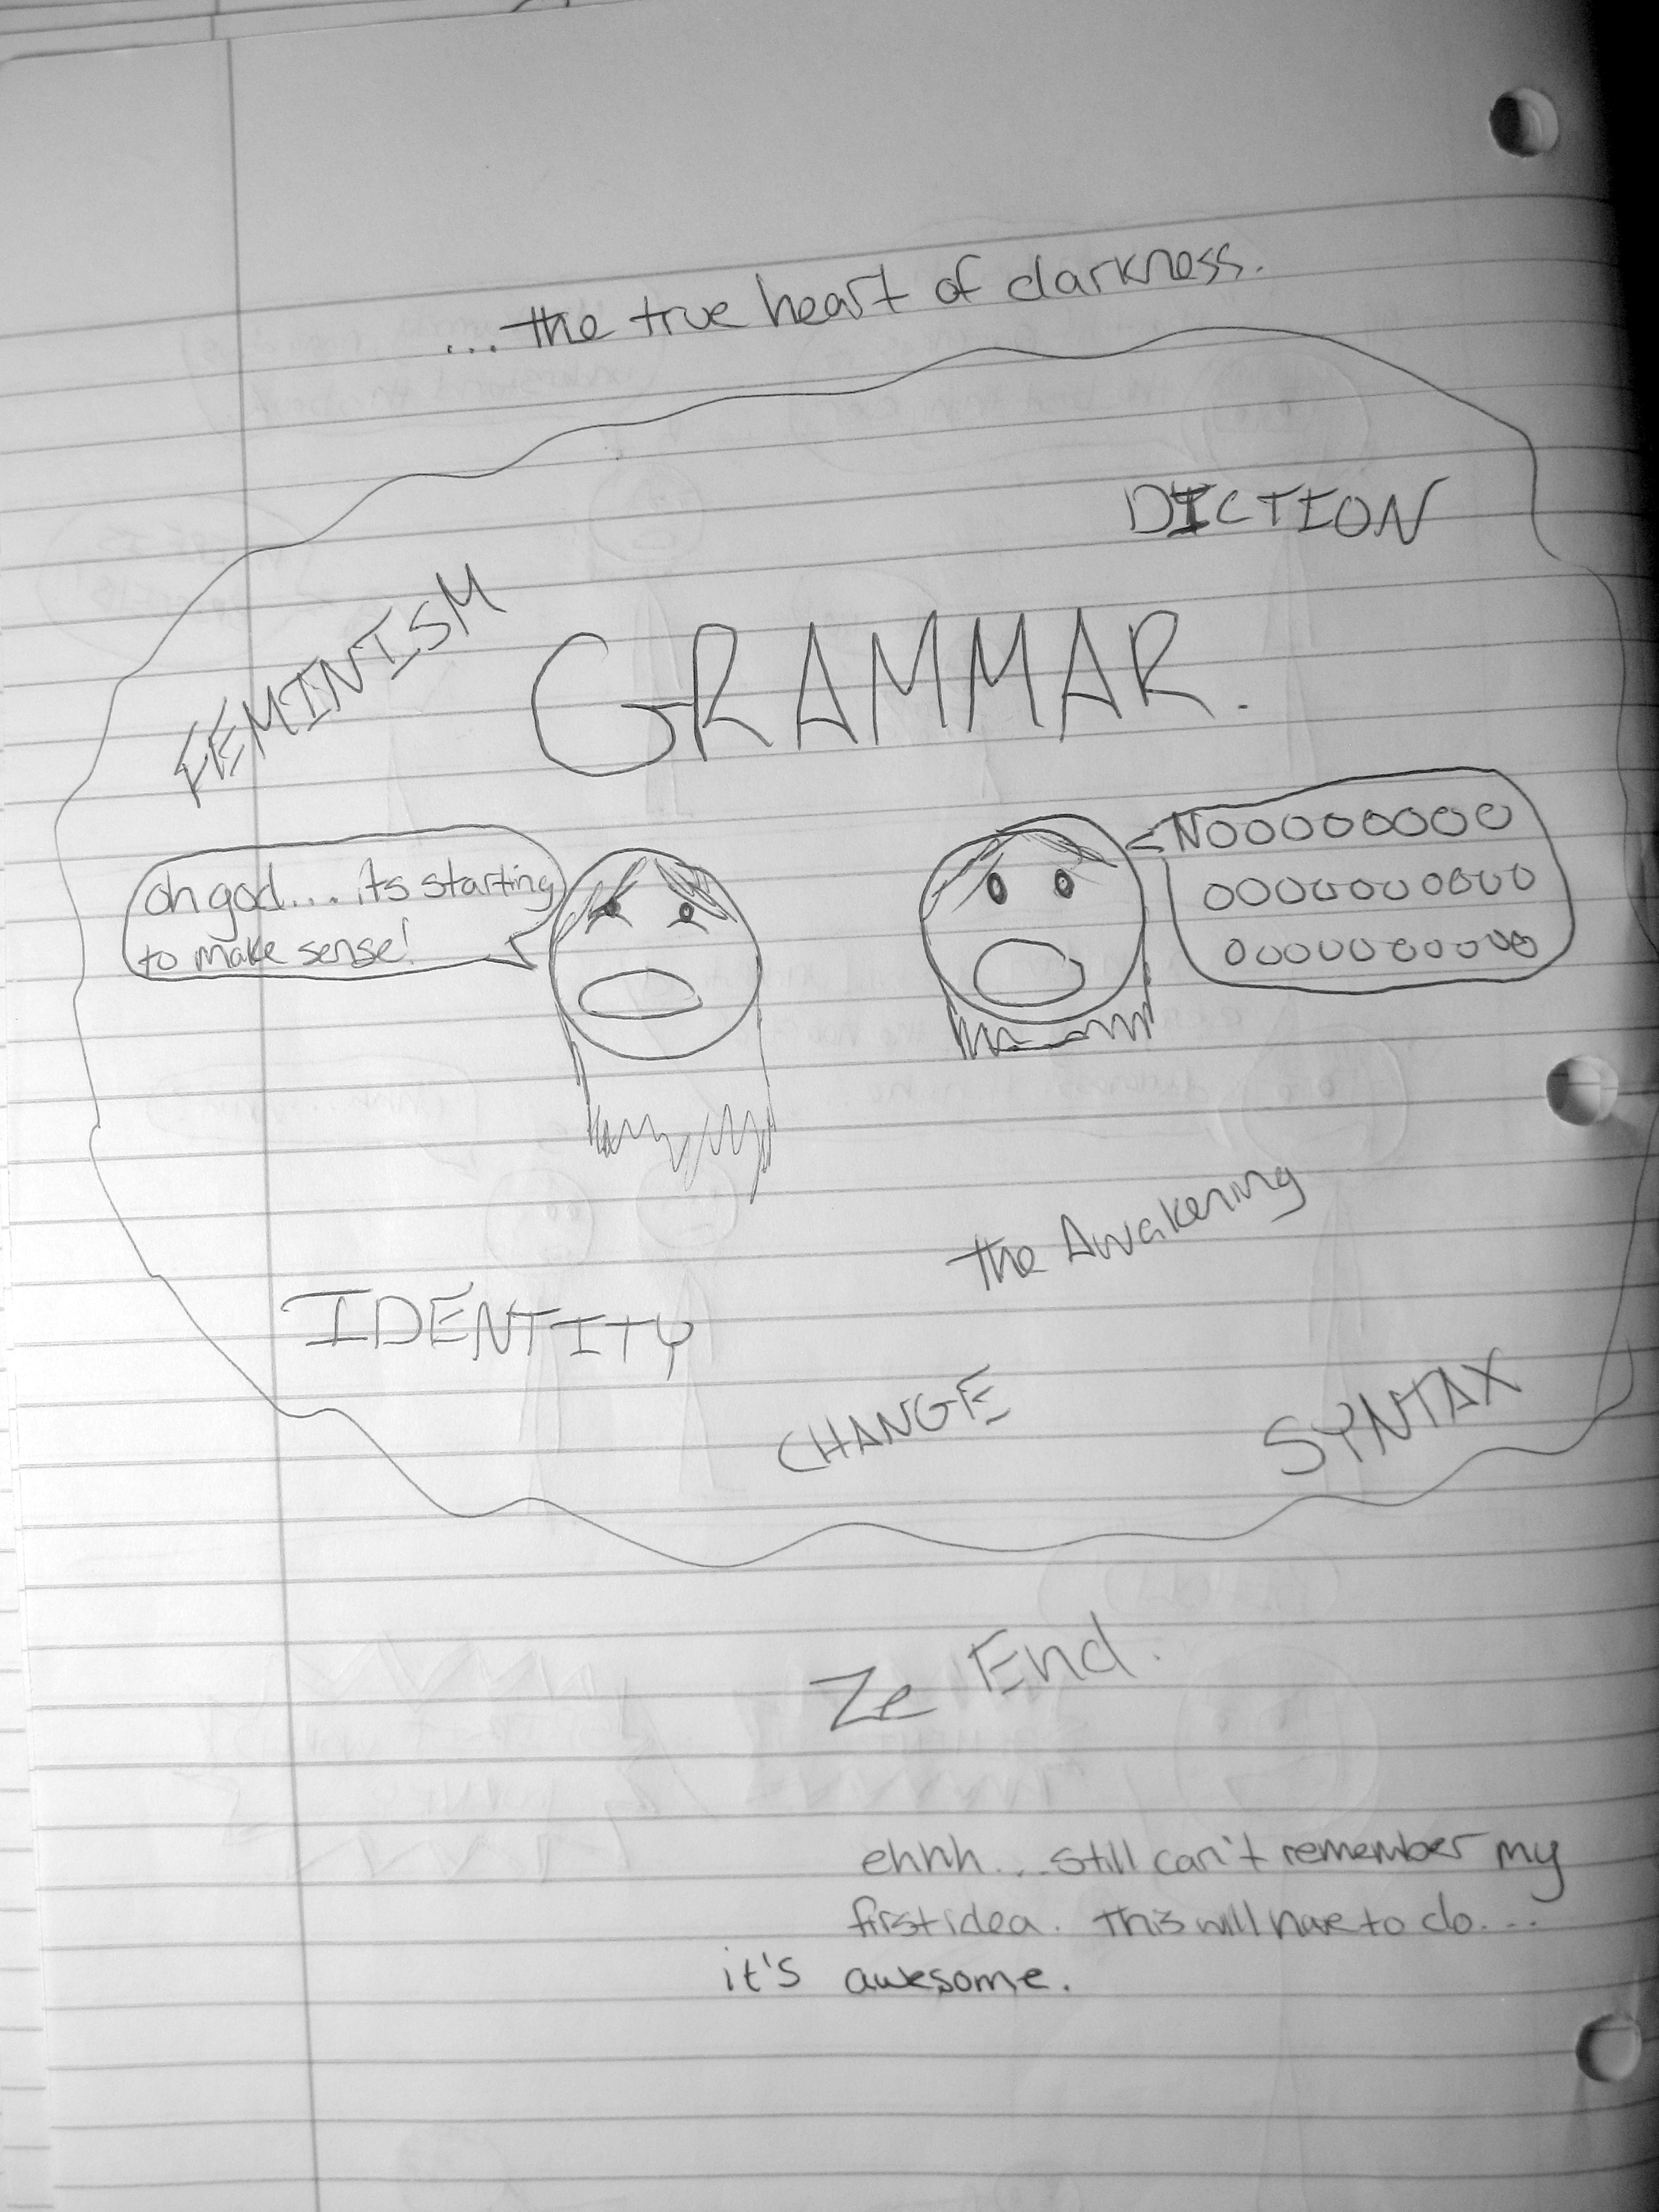 ...the true heart of darkness.
DICTION
FEMINISM
GRAMMAR.
oh god.... its starting
to make sense!
NOOOOOOOO
OOOOOOOOOO
OOOOOOOOOO
the Awakening
IDENTITY
CHANGE
SYNTAX
Ze End.
ehhh...still can't remember my
first idea. this will have to do...
it's awesome.